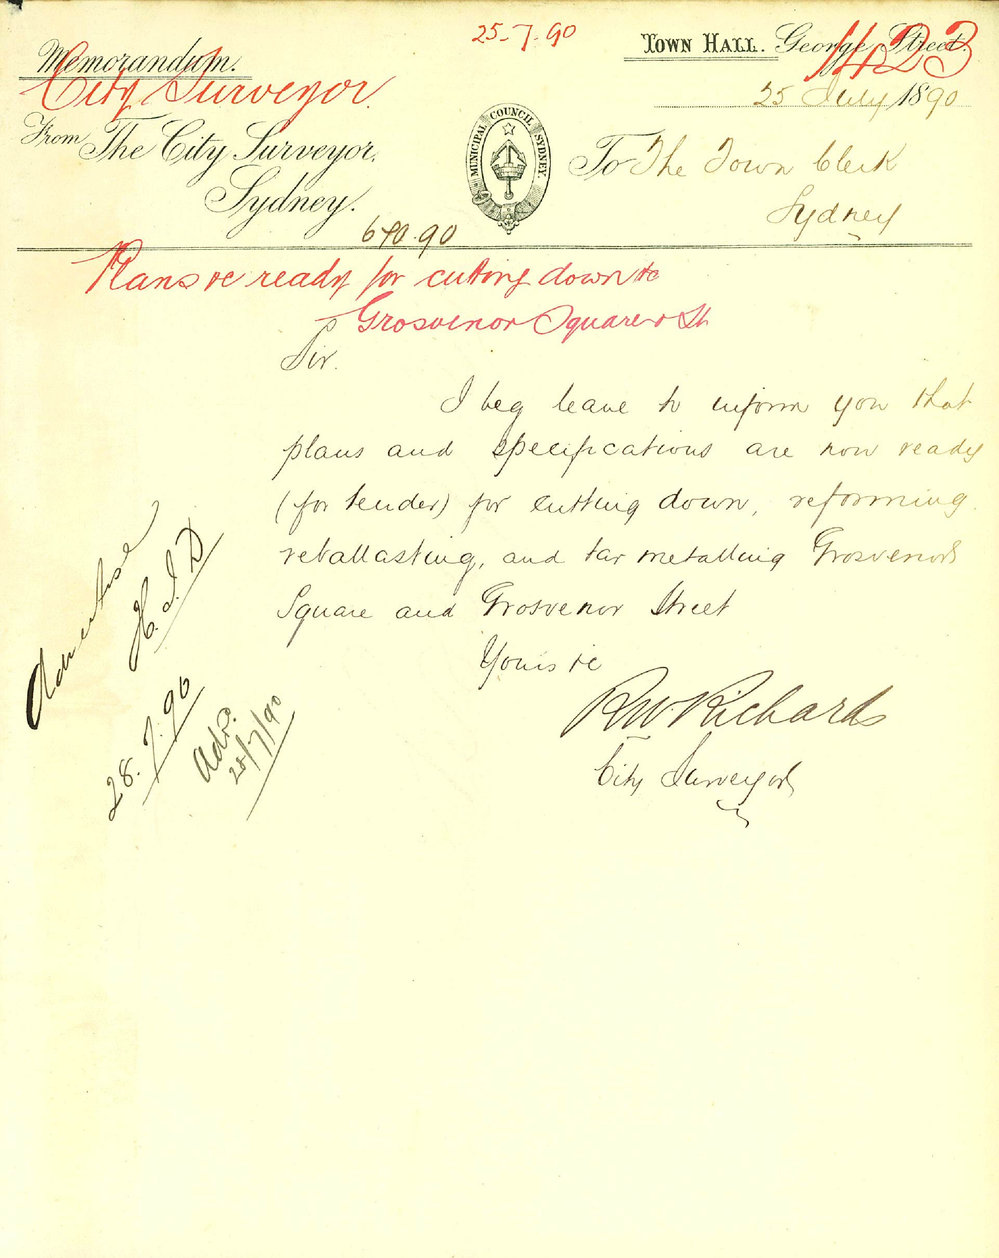 25-7-90
TOWN HALL. George Street.
1423
Memorandum.
City Surveyor
25 July 1890
From The City Surveyor,
Sydney.
MUNICIPAL COUNCIL SYDNEY.
To The Town Clerk
Sydney
690.90
Plans re ready for cutting down &c
Grosvenor Square & St
Sir.
I beg leave to inform you that
plans and specifications are now ready
(for tender) for cutting down, reforming
reballasting, and tar metalling Grosvenor
Square and Grosvenor Street
Yours &c
R W. Richards
City Surveyor
Advertise
28.7.90
Adv.
28/7/90